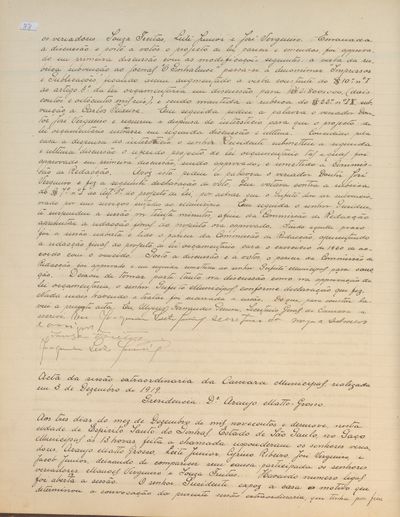 os vereadores Souza Freitas, Leite Junior e José Vergueiro. Encerrada
a discussão e posto a votos o projecto de lei parcia e emendas foi approva-
do em primeira discussão com as modificações seguintes: a verba da ru-
brica subvenção ao Jornal "O Embalense" passa-se a denominar Impressos
e Publicações ficando assim augmentada a verba constante do § 10º nº I
do artigo 6º da lei orçamentaria em discussão para 2:800$000, (dois
contos e oitocentos mil reis), e sendo mantida a rubrica do § 23º nº IX sub-
venção a Carlos Pereira. Em seguida pediu a palavra o vereador Dou-
tor José Vergueiro e requereu a dispensa de intersticio para que o projecto de
lei orçamentaria entrasse em segunda discussão e ultima. Consultada pela
casa a dispensa de intersticio o senhor Presidente submetteu a segunda
e ultima discussão o referido projecto de lei orçamentaria tal e qual foi
approvado em primeira discussão, sendo approvado, e remettido á Commis-
são de Redacção. Após isto pediu a palavra o vereador Doutor José
Vergueiro e fez a seguinte declaração de voto: Que votava contra a rubrica
do § 7º nº I do artº 5º do projecto de lei, por achar que o Prefeito deve ser remune-
rado por seus serviços prestados ao Municipio. Em seguida o senhor Presiden-
te suspendeu a sessão por trinta minutos, afim da Commissão de Redacção
apresentar a redacção final do projecto ora approvado. Findo aquelle praso
foi a sessão reaberta e lido o parecer da Commissão de Redacção, apresentando
a redacção final do projecto de lei orçamentaria para o exercicio de 1920 de ac-
cordo com o vencido. Posto a discussão e a votos, o parecer da Commissão de
Redacção foi approvado e em seguida remettido ao senhor Prefeito Municipal para sanc-
ção. Deixou de tomar parte tanto na discussão como na approvação da
lei orçamentaria, o senhor Prefeito Municipal conforme declaração que fez.
Nada mais havendo a tratar foi encerrada a sessão. Do que, para constar la-
vrei a presente acta. Eu Fernandes Penna, Secretario Geral da Camara a
escrevi. Eu Joaquim Leite Junior secretario da mesma subscrevo
e assigno.
Joaquim Leite Junior
Acta da sessão extraordinaria da Camara Municipal, realizada
em 3 de Dezembro de 1919.
Presidencia Dr. Araujo Matto-Grosso
Aos tres dias do mez de Dezembro de mil novecentos e dezenove, nesta
cidade de Espirito Santo do Pinhal, Estado de São Paulo, no Paço
Municipal, ás 13 horas feita a chamada responderam os senhores verea-
dores, Araujo Matto Grosso, Leite Junior, Cyrino Ribeiro, José Vergueiro e
Jacob Junior, deixando de comparecer sem causa participada os senhores
vereadores Manoel Vergueiro e Souza Freitas. Havendo numero legal
foi aberta a sessão. O senhor Presidente expoz á casa os motivos que
determinou a convocação da presente sessão extraordinaria, que tinha por fim